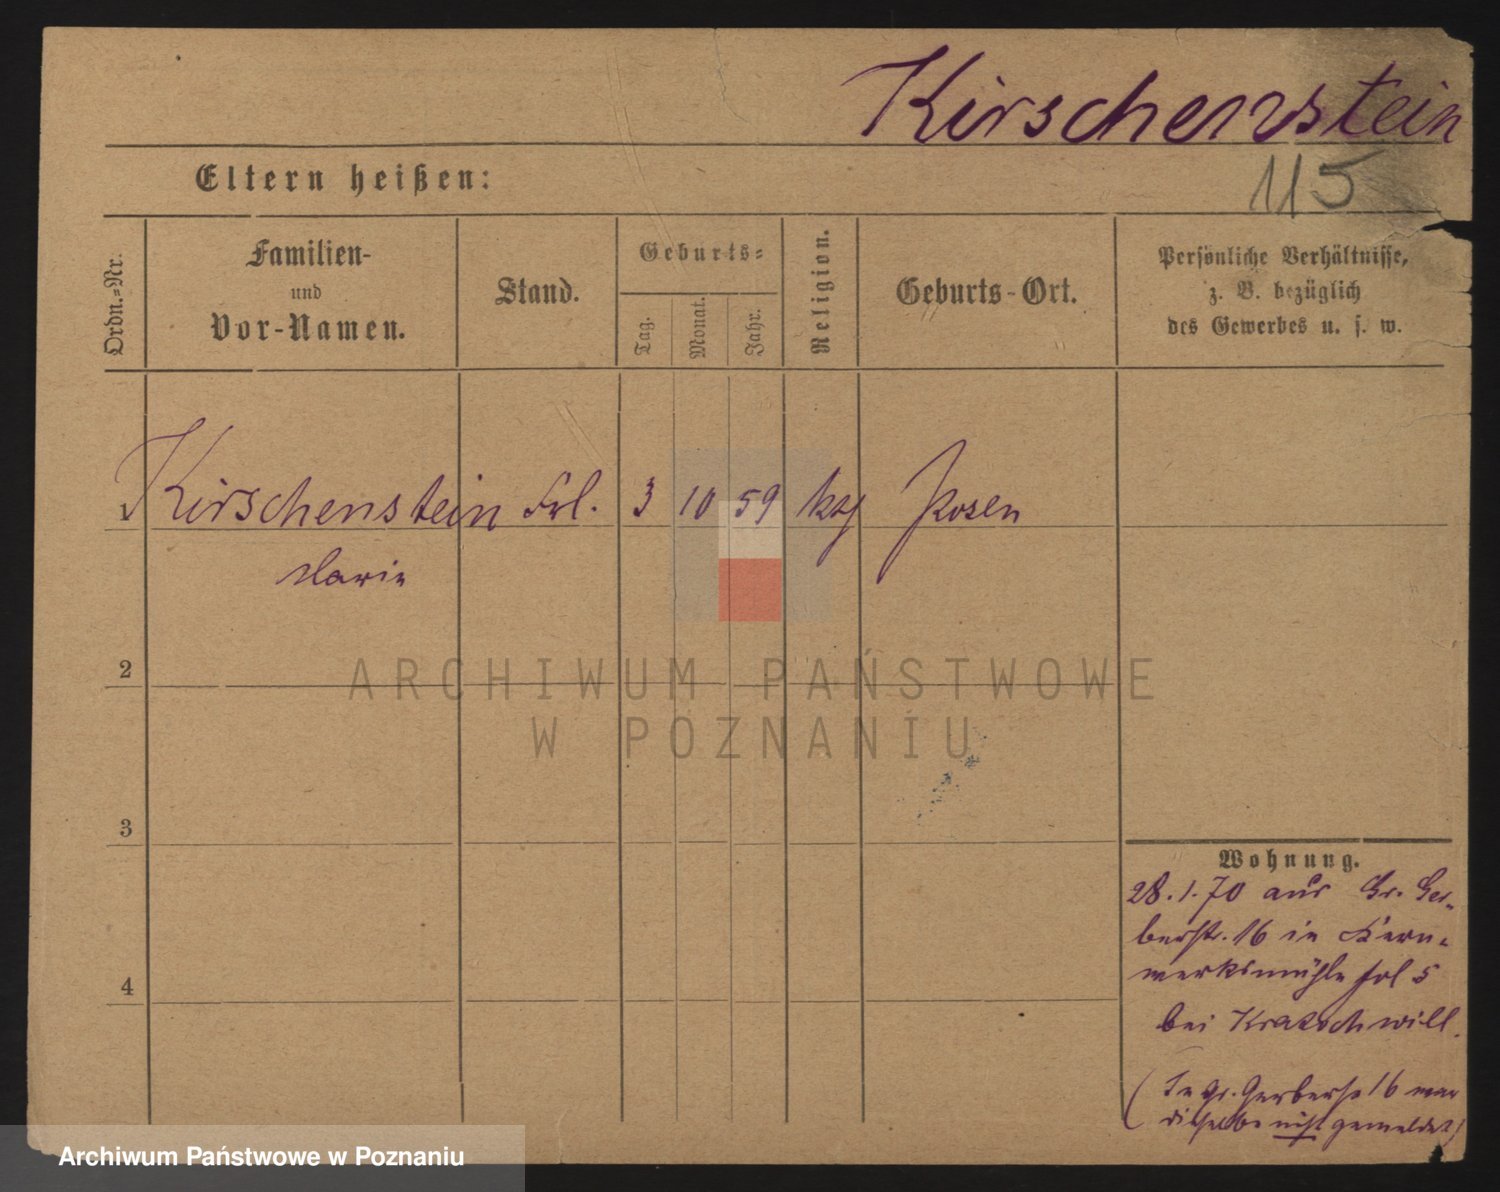 Kirschenstein
115
Eltern heißen:
Ordn.-Nr.
Familien-
und
Vor-Namen.
Stand.
Geburts-
Tag.
Monat.
Jahr.
Religion.
Geburts-Ort.
Persönliche Verhältnisse,
z. B. bezüglich
des Gewerbes u. s. w.
1 Kirschenstein Frl. 3 10 59 Posen
Marie
2
3
4
Wohnung.
28.1.70 aus Gr. Ger-
berstr. 16 in
mühle fol 5
bei Kratochwill.
(In Gr. Gerberstr 16 war
dieselbe nicht gemeldet)
ARCHIWUM PAŃSTWOWE
W POZNANIU
Archiwum Państwowe w Poznaniu